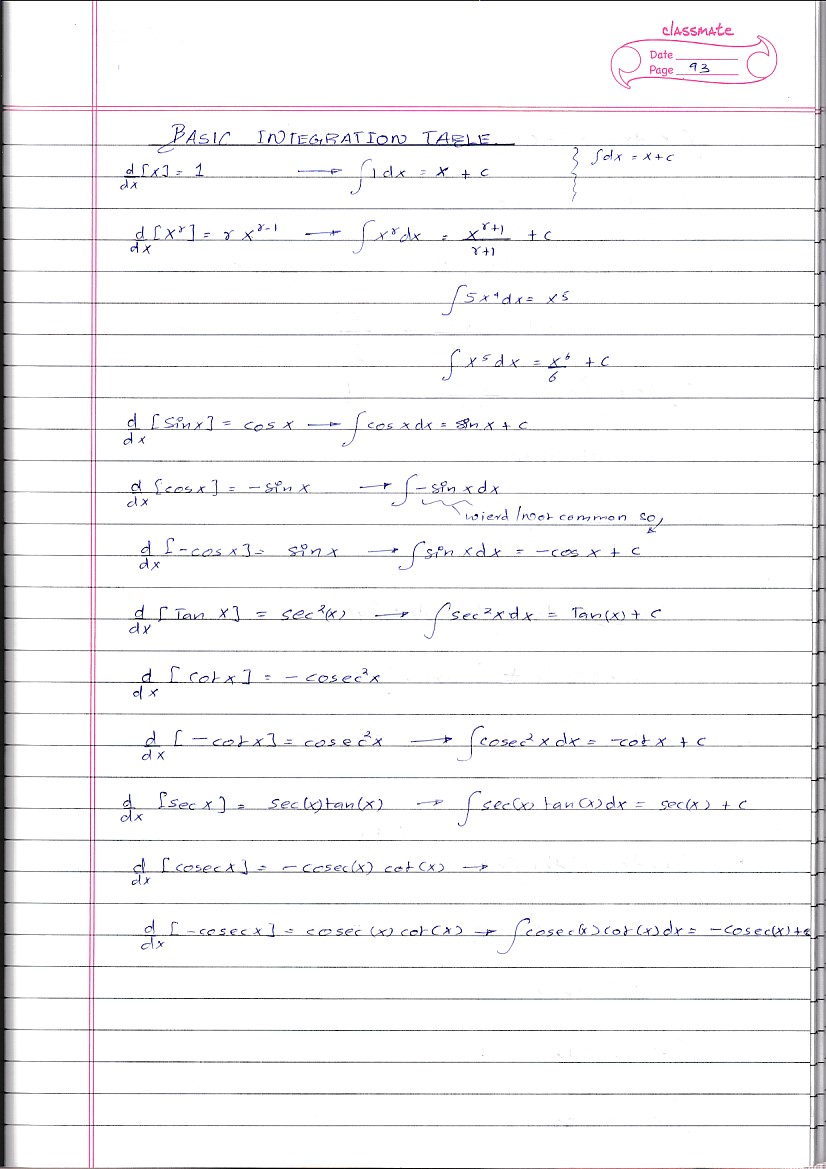 classmate
Date
Page 93
BASIC INTEGRATION TABLE
d/dx [x] = 1 → ∫1dx = x + c } ∫dx = x+c
d/dx [xʳ] = r xʳ⁻¹ → ∫xʳdx = xʳ⁺¹/r+1 + c
∫5x⁴dx = x⁵
∫x⁵dx = x⁶/6 + c
d/dx [sinx] = cos x → ∫cos x dx = sin x + c
d/dx [cosx] = -sin x → ∫-sin x dx
wierd / not common so,
d/dx [-cosx] = sin x → ∫sin x dx = -cos x + c
d/dx [Tan x] = sec²(x) → ∫sec²x dx = Tan(x) + c
d/dx [cotx] = - cosec²x
d/dx [-cotx] = cosec²x → ∫cosec²x dx = -cot x + c
d/dx [sec x] = sec(x)tan(x) → ∫sec(x) tan(x)dx = sec(x) + c
d/dx [cosecx] = -cosec(x) cot(x) →
d/dx [-cosecx] = cosec(x) cot(x) → ∫cosec(x)cot(x)dx = -cosec(x)+c